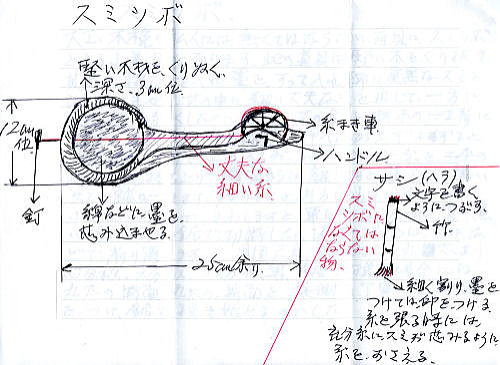 スミツボ
堅い木材をくりぬく。
深さ、3cm位.
12cm
位.
釘
綿などに墨を.
しみ込ませる.
丈夫な
細い糸.
糸まき車.
ハンドル
25cm余り.
サシ(ヘラ)
文字を書く
ようにつぶす.
竹.
スミ
ツボに
なくては
ならない
物.
細く割り、墨を
つけては印をつける.
糸を張る時には、
充分糸にスミがしみるように
糸をおさえる.